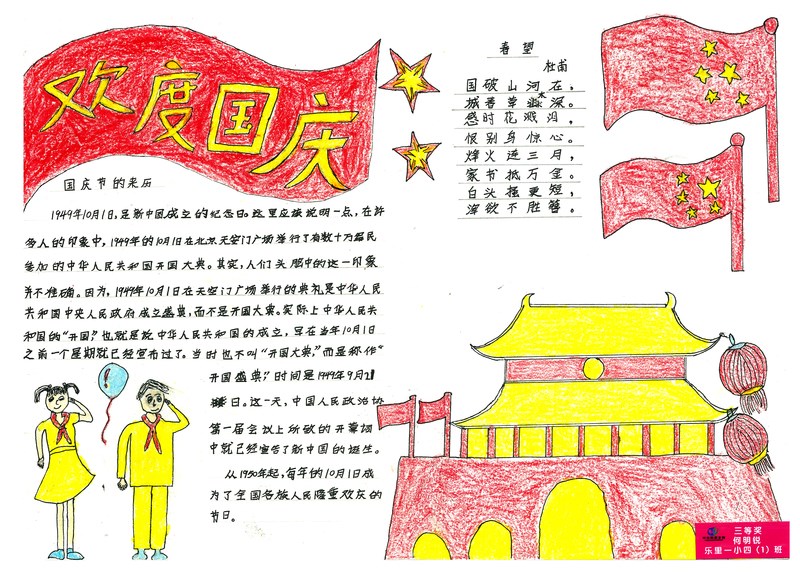 欢度国庆
国庆节的来历
1949年10月1日,是新中国成立的纪念日。这里应该说明一点,在许
多人的印象中,1949年的10月1日在北京天安门广场举行了有数十万军民
参加的中华人民共和国开国大典。其实,人们头脑中的这一印象
并不准确。因为,1949年10月1日在天安门广场举行的典礼是中华人民
共和国中央人民政府成立盛典,而不是开国大典。实际上中华人民共
和国的“开国”,也就是说中华人民共和国的成立,早在当年10月1日
之前一个星期就已经宣布过了。当时也不叫“开国大典”,而是称作“
开国盛典”,时间是1949年9月21
日。这一天,中国人民政治协
第一届会议上所致的开幕词
中就已经宣告了新中国的诞生。
从1950年起,每年的10月1日成
为了全国各族人民隆重欢庆的
节日。
春望
杜甫
国破山河在,
城春草木深。
感时花溅泪,
恨别鸟惊心。
烽火连三月,
家书抵万金。
白头搔更短,
浑欲不胜簪。
三等奖
何明锐
乐里一小四(1)班